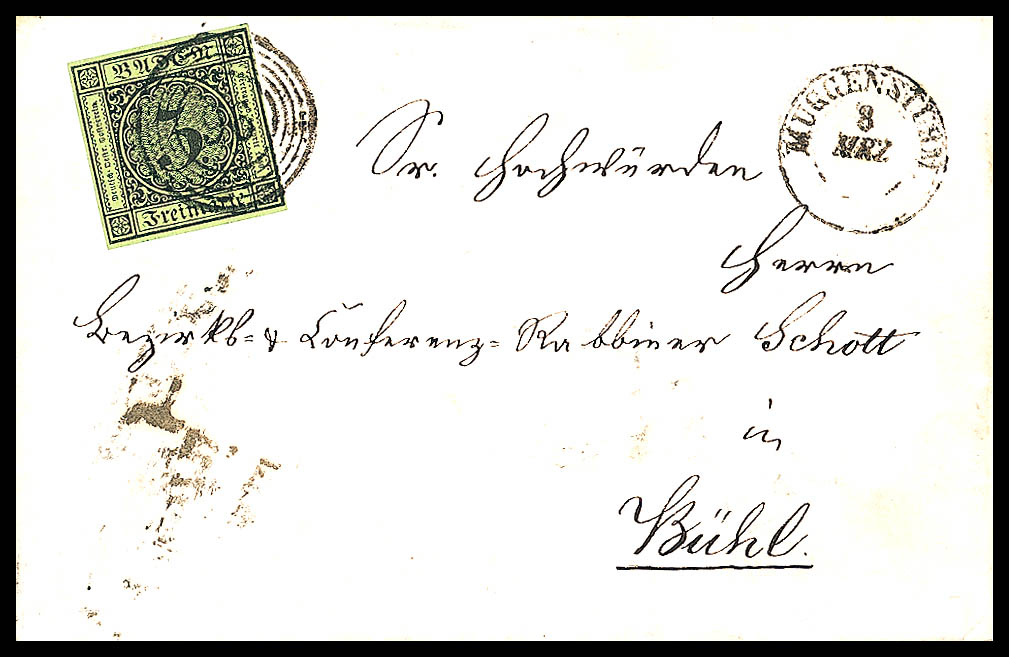 BADEN
3
Freimarke
MUGGENSTURM
8
MRZ
Sr. Hochwürden
Herrn
Bezirks- & Conferenz- Rabbiner Schott
in
Bühl.